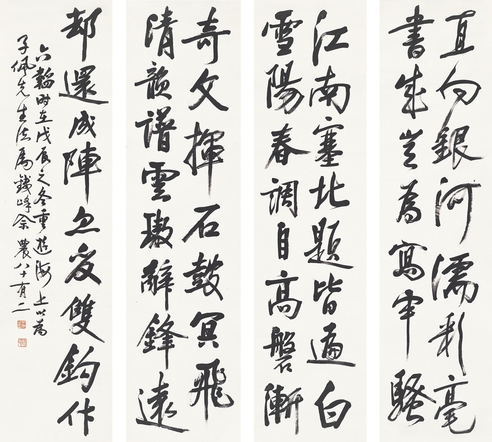 直向銀河濡彩毫
書成豈為寫牢騷
江南塞北題皆遍白
雪陽春調自高磐漸
奇文揮石鼓冥飛
清韻譜雲璈辭鋒遠
却還成陣忽變雙鈎作
六韜時在戊辰之冬重遊海上以為
子佩先生法屬峰余農八十有二